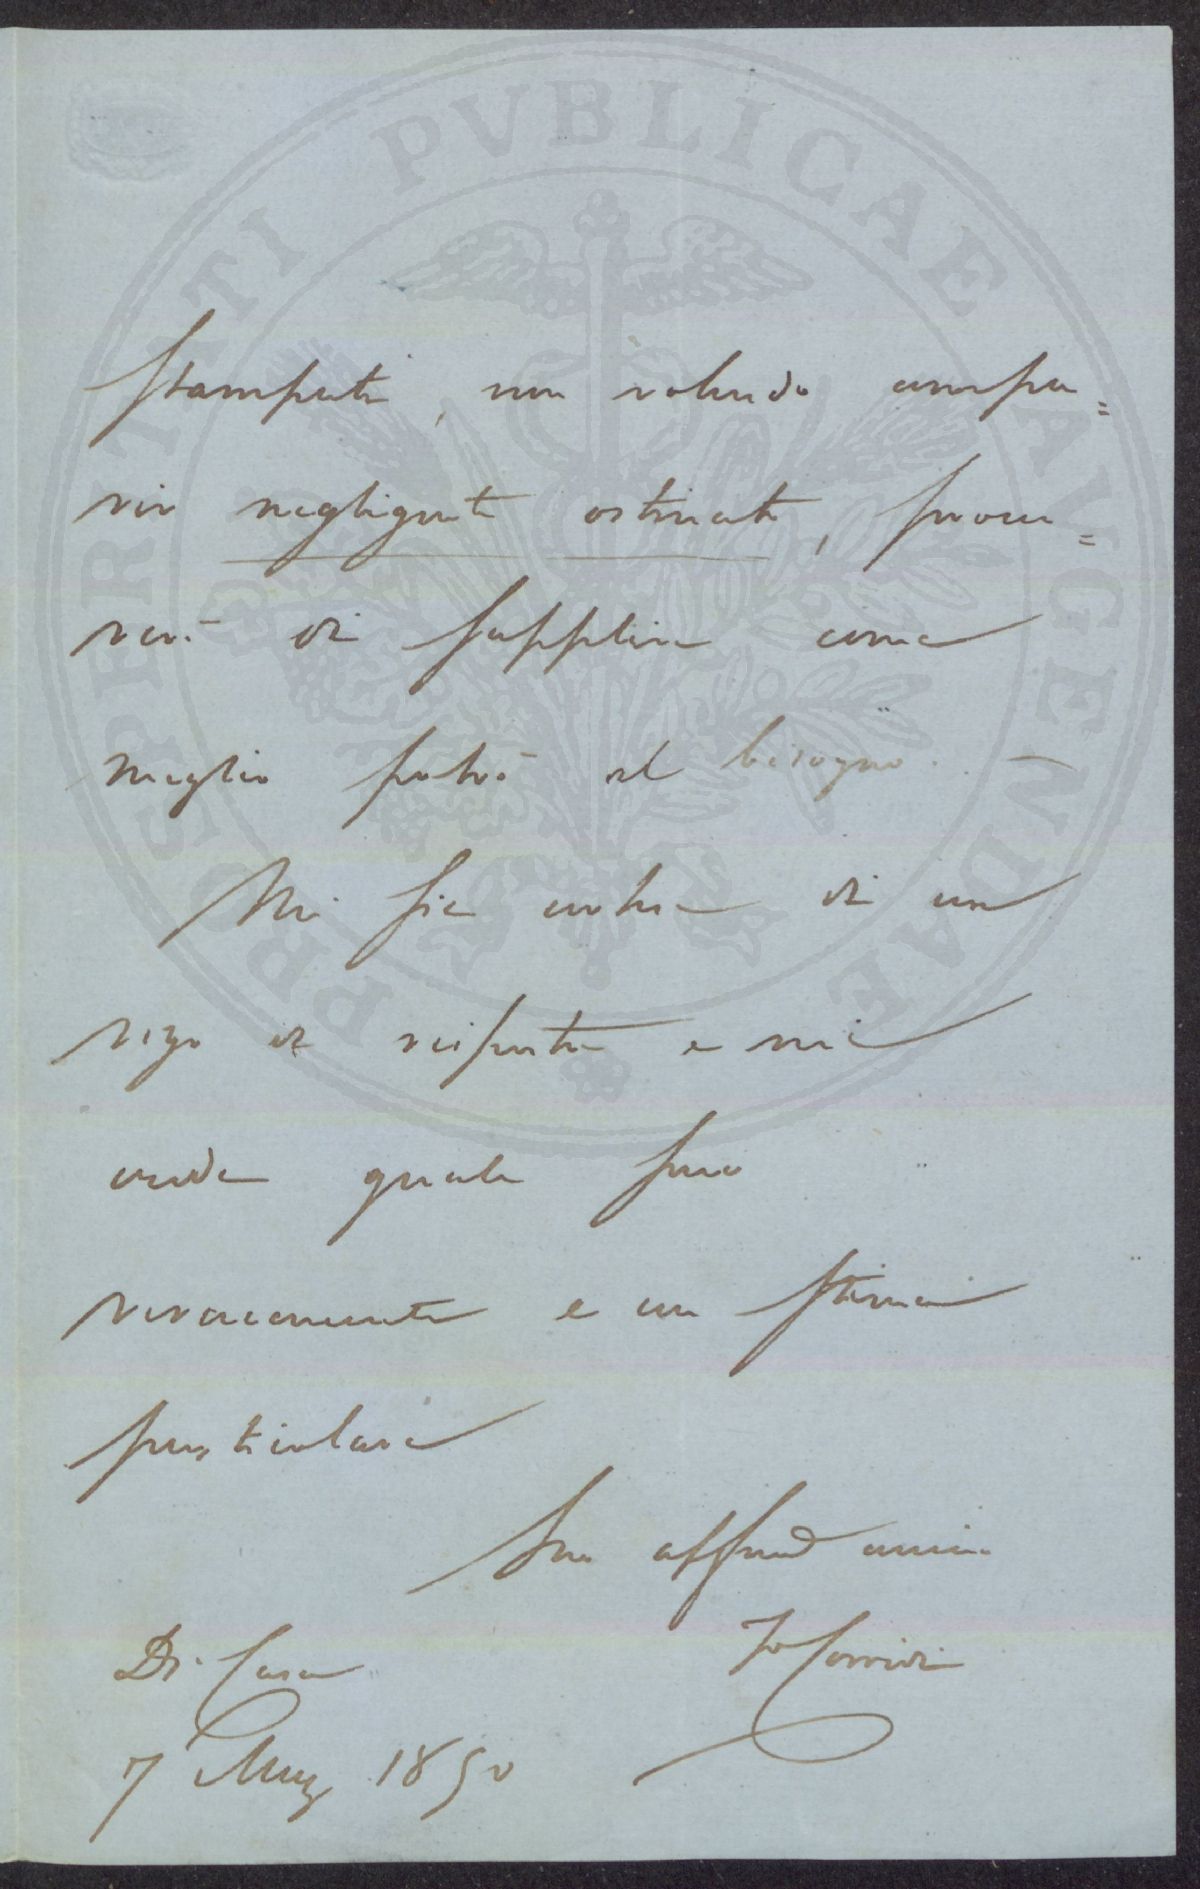 PROSPERITATI PVBLICAE AVGENDAE
stampati, non volendo compa=
rir negligente ostinato, procu=
rerò di supplire come
meglio potrò al bisogno. —
Mi sia cortese di un
rigo di risposta e mi
creda quale sono
veracemente e con stima
particolare
Suo affmo amico
Di Casa
FCorridi
7 Mag 1850